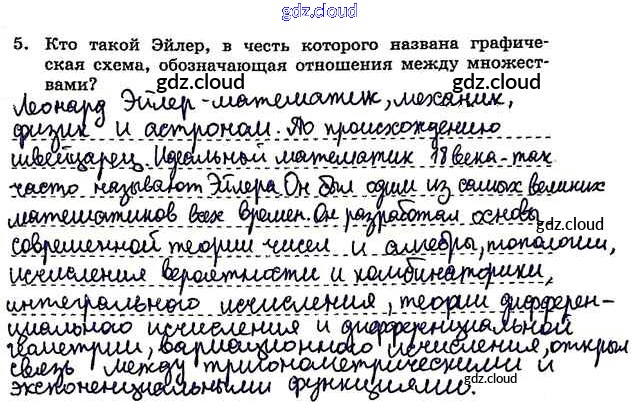 gdz.cloud
5. Кто такой Эйлер, в честь которого названа графиче-
ская схема, обозначающая отношения между множест-
вами?
gdz.cloud gdz.cloud
Леонард Эйлер-математик, механик,
физик и астроном. По происхождению
швейцарец. Идеальный математик 18 века-так
часто называют Эйлера. Он был одим из самых великих
математиков всех времен. Он разработал основы
gdz.cloud
современной теории чисел и алгебры, топологии,
gdz.cloud
исчисления вероятности и комбинаторики,
интегрального исчисления, теории дифферен-
циального исчисления и дифференциальной
геометрии, вариационного исчисления, открыл
связь между тригонометрическими и
экспоненциальными функциями.
gdz.cloud